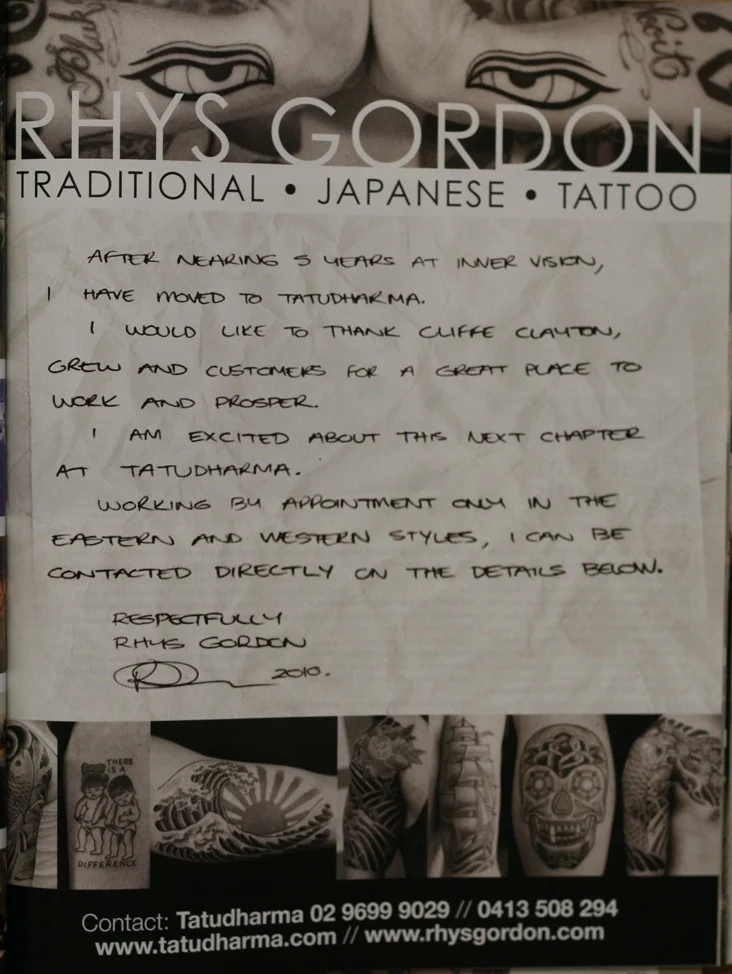 RHYS GORDON
TRADITIONAL • JAPANESE • TATTOO
AFTER NEARING 5 YEARS AT INNER VISION,
I HAVE MOVED TO TATUDHARMA.
I WOULD LIKE TO THANK CLIFFE CLAYTON,
CREW AND CUSTOMERS FOR A GREAT PLACE TO
WORK AND PROSPER.
I AM EXCITED ABOUT THIS NEXT CHAPTER
AT TATUDHARMA.
WORKING BY APPOINTMENT ONLY IN THE
EASTERN AND WESTERN STYLES, I CAN BE
CONTACTED DIRECTLY ON THE DETAILS BELOW.
RESPECTFULLY
RHYS GORDON
2010.
THERE
IS A
DIFFERENCE
Contact: Tatudharma 02 9699 9029 // 0413 508 294
www.tatudharma.com // www.rhysgordon.com